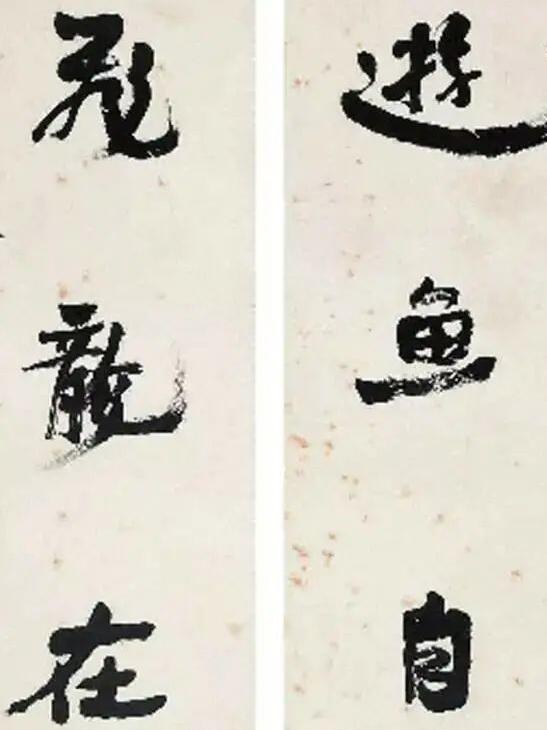 遊魚自
飛龍在